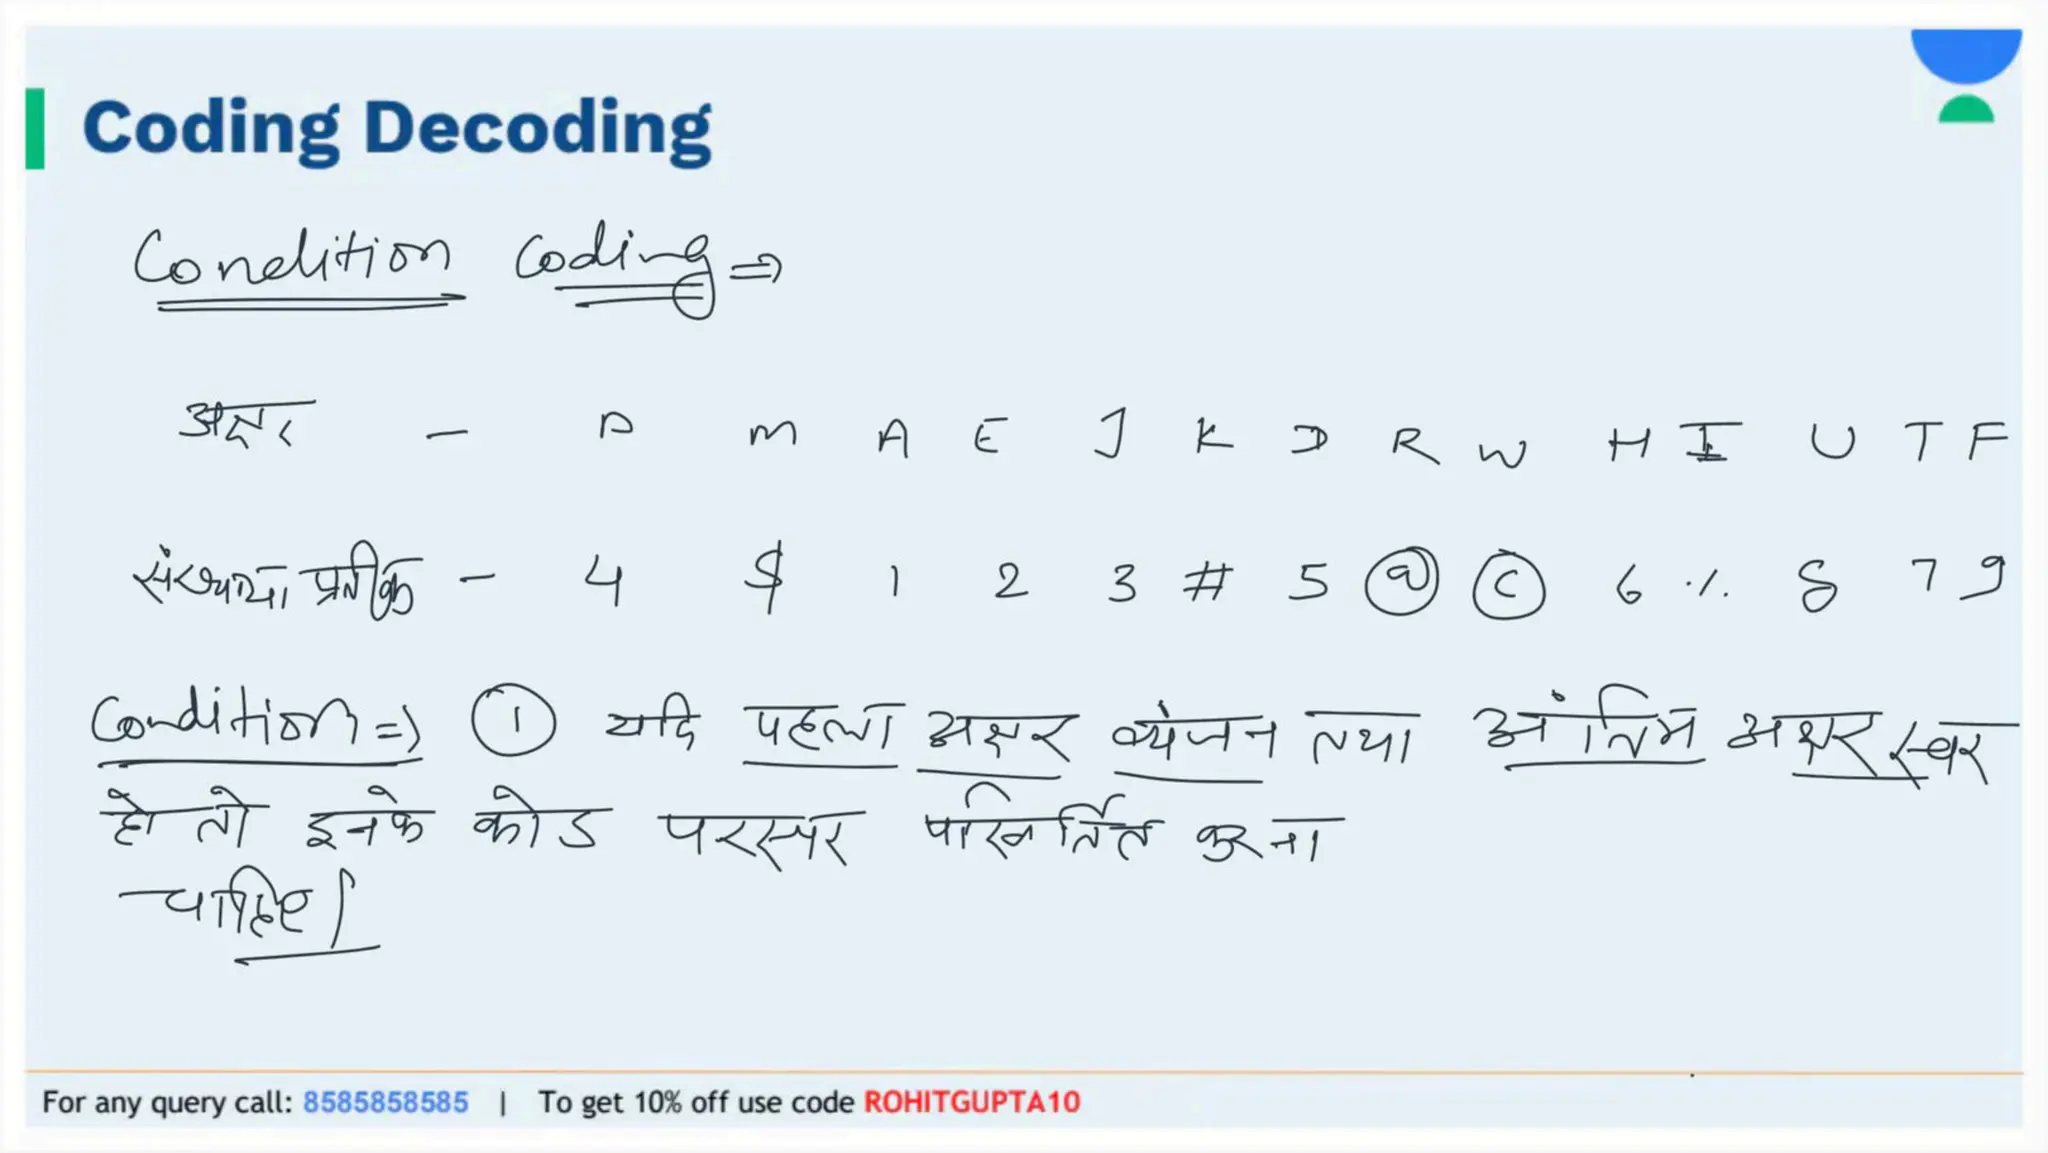 Coding Decoding
Condition Coding ⇒
अक्षर - P M A E J K D R W H I U T F
संख्या/प्रतीक - 4 $ 1 2 3 # 5 @ © 6 % 8 7 9
Condition ⇒ ① यदि पहला अक्षर व्यंजन तथा अंतिम अक्षर स्वर
हो तो इनके कोड परस्पर परिवर्तित करना
चाहिए।
For any query call: 8585858585 | To get 10% off use code ROHITGUPTA10